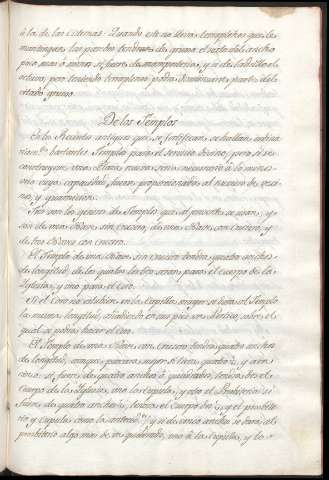 à la de las Cisternas. Quando este no lleva templetes que le
mantengan, las paredes tendran de grueso el sexto del ancho
poco mas ó menos si fuere de mamposteria, y si de ladrillo el
octavo, pero teniendo
citado grueso.
De los Templos
En los Recintos antiguos que se fortifican se hallan ordina
riam.te bastantes Templos para el Servicio Divino, pero si se
construyen una Plaza nueva será necesario à lo menos
uno cuya capacidad sea proporcionada al numero de veci
nos, y guarnicion.
Tres son los generos de Templos que al presente se usan, y
son de una Nave sin crucero, de una Nave con crucero, y
de tres Naves con crucero.
El Templo de una Nave sin crucero tendra quatro anchos
de longitud, de los quales los tres seran para el cuerpo de la
Yglesia, y uno para el Coro.
Si el Coro no estubiere en la Capilla mayor se dara al Templo
la misma longitud, añadiendo un Portico, sobre el
qual se podra hacer el Coro.
El Templo de una Nave con crucero tendra quatro anchos
de longitud, aunque parece mejor si tiene quatro y
si fuere de quatro anchos ó quadrados, tendra tres el
Cuerpo de la Yglesia, uno la Cupula, y otro el Presbiterio si
fuere de quatro anchos tendra el Cuerpo y el presbite
rio y Cupula como la y si de cinco anchos se dara al
presbiterio algo mas de un quadrado, uno à la Cupula, y lo